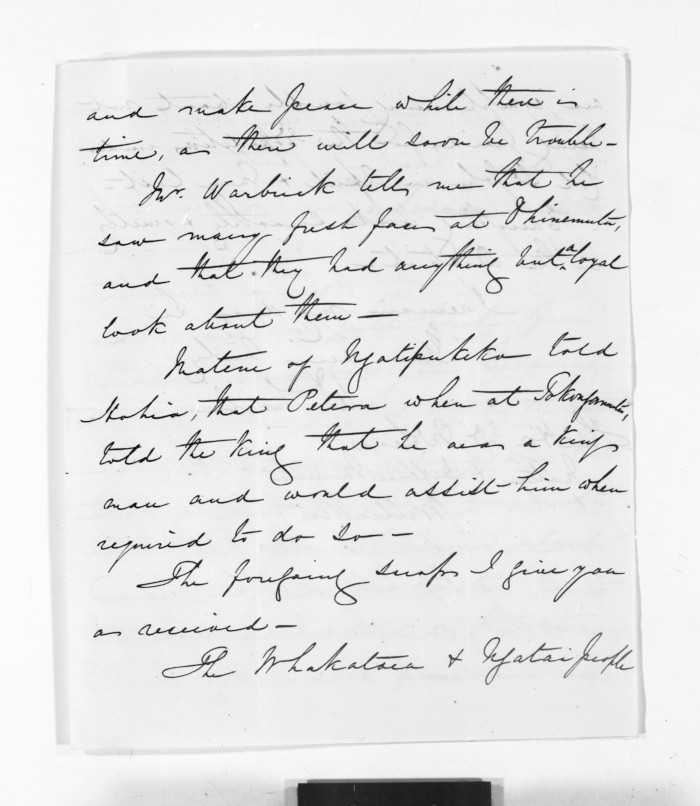 and make peace while there is
time, as there will soon be trouble -
Mr. Warbrick tells me that he
saw many fresh faces at Ohinemutu,
and that they had anything but a loyal
look about them -
Matene of Ngatipukeko told
Hohia, that Petera when at Tokangamutu,
told the King that he was a Kings
man and would assist him when
required to do so -
The foregoing scraps I give you
as received -
The Whakatoea & Ngatai people